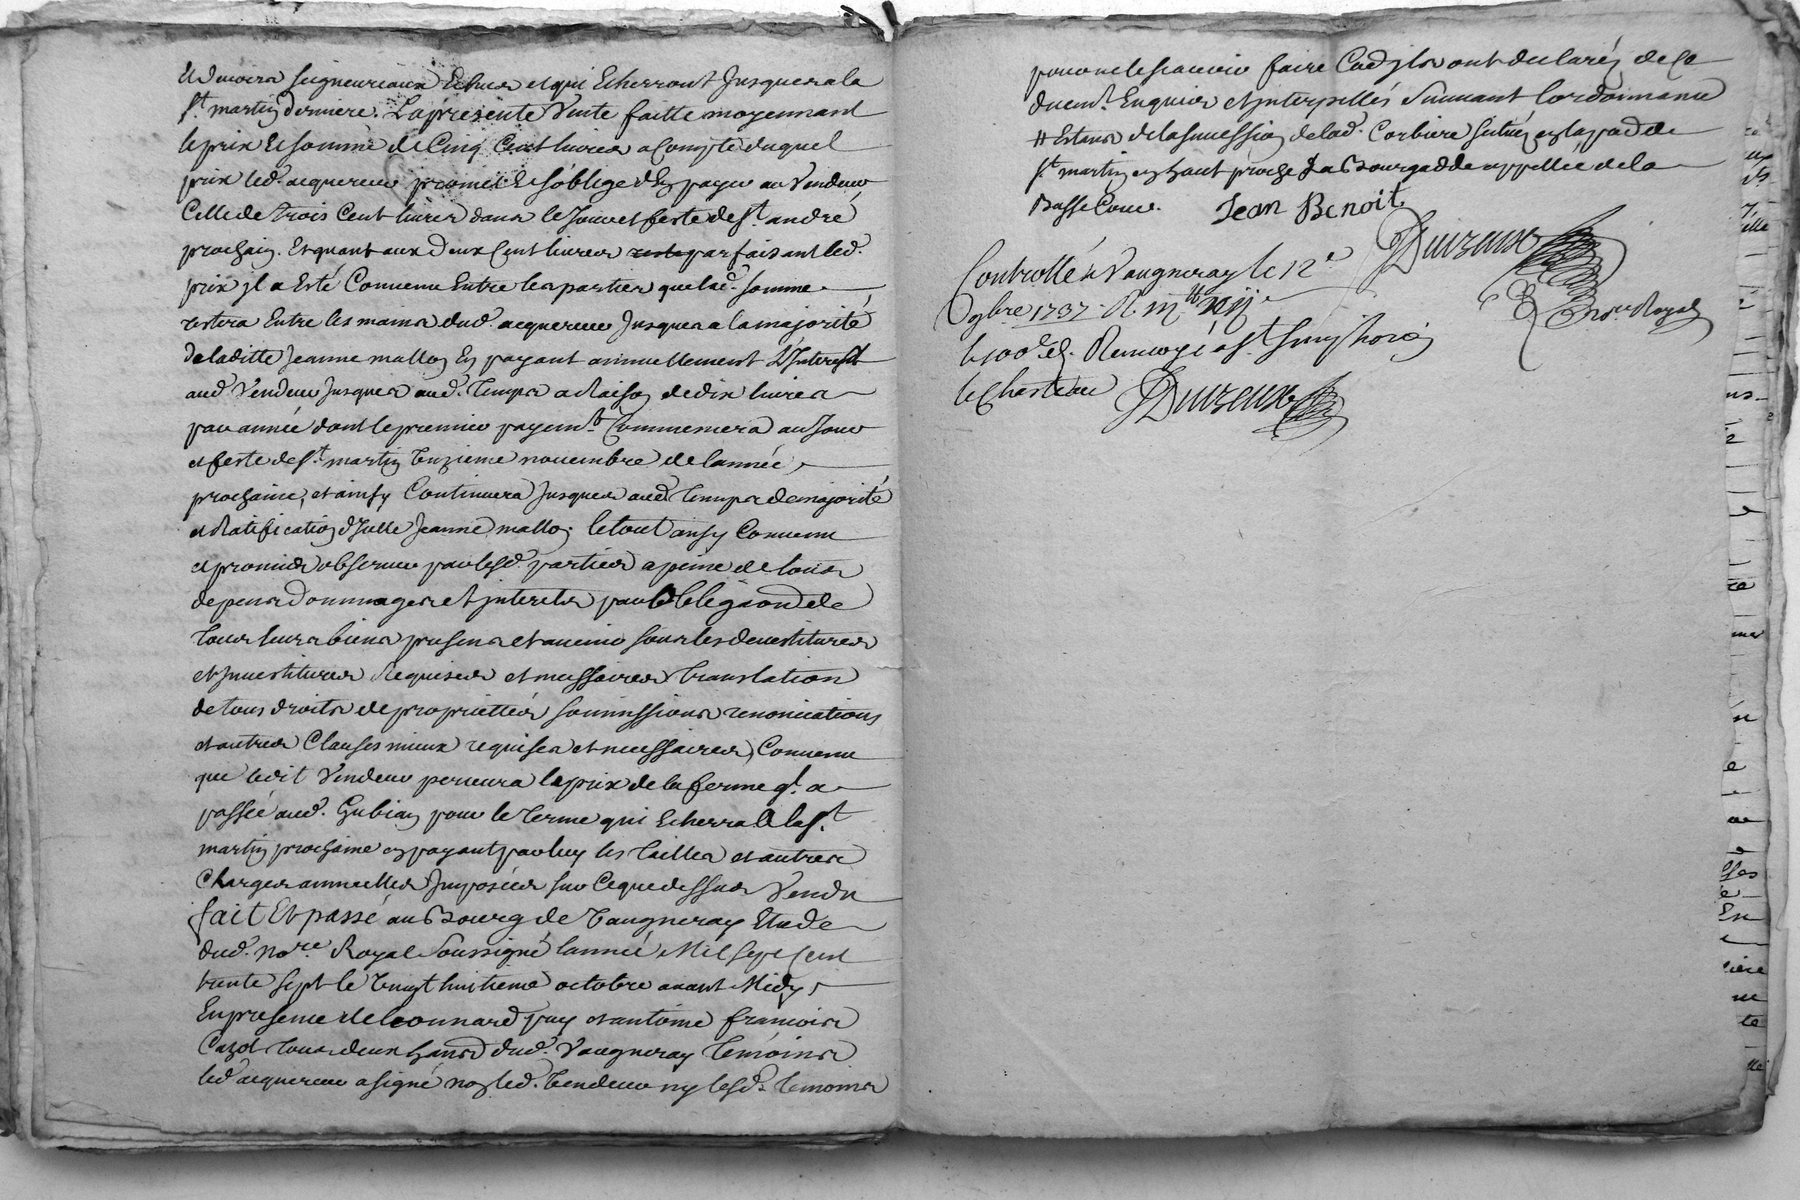 et devoirs seigneuriaux Echus et qui Echerront Jusques a la
St martin derniere. La presente Vente faitte moyennant
le prix Et somme de Cinq Cent livres a Compte duquel
prix led. acquereur promet Et s'oblige d'En payer au Vendeur
Celle de trois Cent livres dans le Jour et feste de St andré
prochain. Et quant aux deux Cent livres parfaisant led.
prix jl a Esté Convenu Entre les parties que lad. somme
restera Entre les mains dud. acquereur Jusques a la majorité
de laditte Jeanne mallon En payant annuellement L'Interest
aud. Vendeur Jusques aud. temps a Raison de dix livres
par année dont le premier payemt. Commencera au Jour
et feste de St. martin Unzieme novembre de lannée
prochaine, et ainsy Continuera Jusques aud. temps de majorité
et Ratification d'Icelle Jeanne mallon. le tout ainsy Convenu
et promis observer par lesd. parties a peine de tous
depens dommages et jnterets par obligaon de
tous leurs biens presens et avenir sous les devestitures
et jnvestitures Requises et necessaires translation
de tous droits de proprietté soumissions renonciations
et autres Clauses mieux requises et necessaires, Convenu
que ledit Vendeur percevra le prix de la ferme ql. a
passée aud. Gubian pour le terme qui Echerra a la St.
martin prochaine en payant par luy les tailles et autres
Charges annuelles Imposées sur Ce que dessus Vendu
fait Et passé au Bourg de Vaugneray Etude
dud. nore. Royal Soussigné lannée Mil sept cent
trente sept le Vingt huitieme octobre avant Midy
En presence de Leonnard puy et antoine francois
Cazot tous deux habts dud. Vaugneray temoins
led. acquereur a signé non led. Vendeur ny lesd. temoins
pour ne le scavoir faire Ce qu'ils ont declarés de Ce
duemt. Enquis et jnterpellés suivant lordonnance
# Estans de la succession de lad. Corbiere situés en la par de
St martin en haut proche La Bourgade appellée de la
Basse Cour. Jean Benoit
Duvzeux
Nore Royal
Controllé a Vaugneray le 12e
9bre 1737. R.
Renvoyé a St. Simphorien
le Chasteau Duvzeux